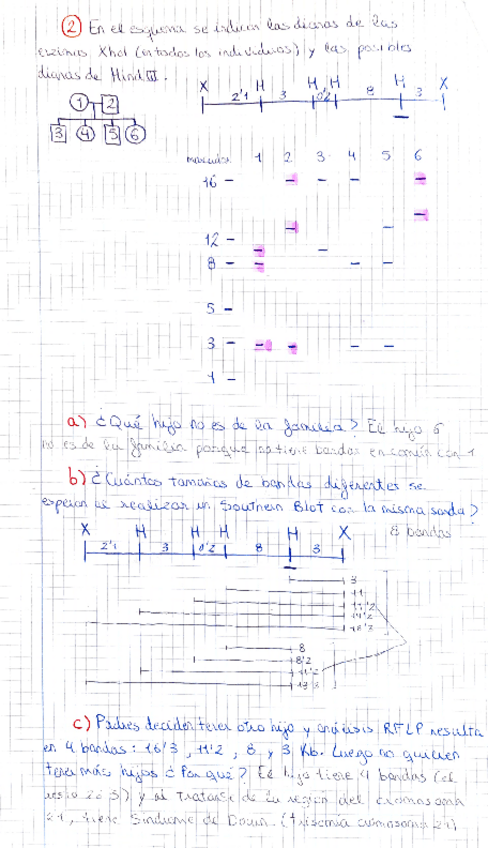 ② En el esquema se indican las dianas de las
enzimas XhoI (en todos los individuos) y las posibles
dianas de Hind III.
X H H H H X
2'1 3 0'2 8 3
1 2
3 4 5 6
1 2 3 4 5 6
16 -
12 -
8 -
5 -
3 -
1 -
a) ¿Qué hijo no es de la familia? El hijo 6
no es de la familia porque no tiene bandas en común con 1
b) ¿Cuántos tamaños de bandas diferentes se
esperan al realizar un Southern Blot con la misma sonda?
8 bandas
X H H H H X
2'1 3 0'2 8 3
3
11
11'2
14'2
8
8'2
11'2
c) Padres deciden tener otro hijo y análisis RFLP resulta
en 4 bandas: 16'3, 11'2, 8 y 3 Kb. Luego no quieren
tener más hijos ¿Por qué? El hijo tiene 4 bandas (el
resto 2 o 3) y al tratarse de la región del cromosoma
21, tiene Síndrome de Down. (trisomía cromosoma 21)